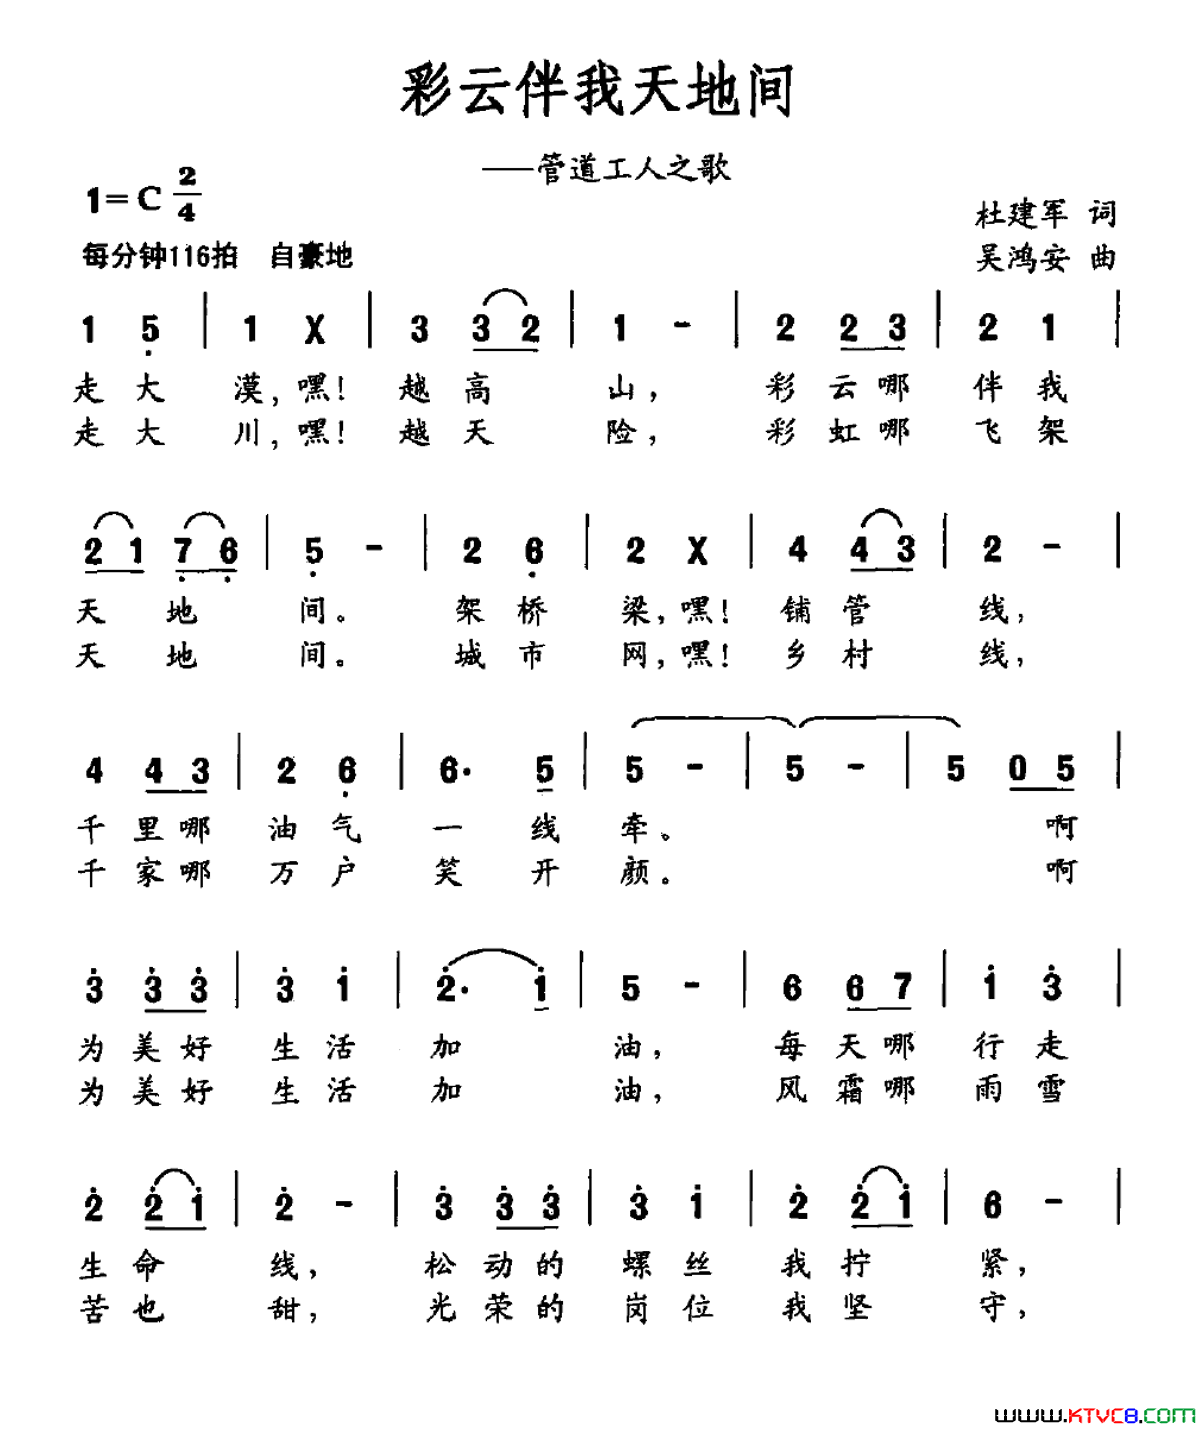 彩云伴我天地间
——管道工人之歌
1=C 2/4
杜建军 词
每分钟116拍 自豪地
吴鸿安 曲
1 5̣ | 1 X | 3 3 2 | 1 - | 2 2 3 | 2 1 |
走大漠,嘿!越高山,彩云哪伴我
走大川,嘿!越天险,彩虹哪飞架
2 1 7̣ 6̣ | 5̣ - | 2 6̣ | 2 X | 4 4 3 | 2 - |
天地间。架桥梁,嘿!铺管线,
天地间。城市网,嘿!乡村线,
4 4 3 | 2 6̣ | 6· 5 | 5 - | 5 - | 5 0 5 |
千里哪油气一线牵。啊
千家哪万户笑开颜。啊
3̇ 3̇ 3̇ | 3̇ 1̇ | 2̇· 1̇ | 5 - | 6 6 7 | 1̇ 3̇ |
为美好生活加油,每天哪行走
为美好生活加油,风霜哪雨雪
2̇ 2̇ 1̇ | 2̇ - | 3̇ 3̇ 3̇ | 3̇ 1̇ | 2̇ 2̇ 1̇ | 6 - |
生命线,松动的螺丝我拧紧,
苦也甜,光荣的岗位我坚守,
www.KTVC8.COM